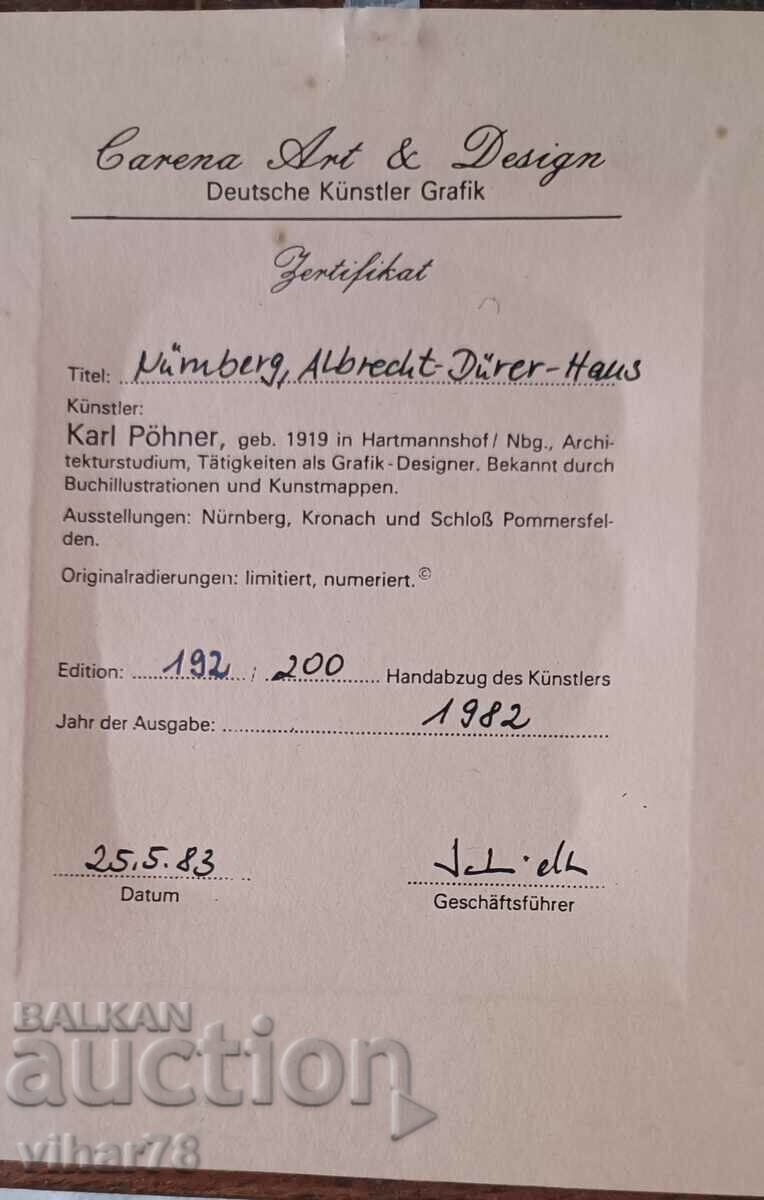 Carena Art & Design
Deutsche Künstler Grafik
Zertifikat
Titel: Nürnberg, Albrecht-Dürer-Haus
Künstler:
Karl Pöhner, geb. 1919 in Hartmannshof/ Nbg., Archi-
tekturstudium, Tätigkeiten als Grafik-Designer. Bekannt durch
Buchillustrationen und Kunstmappen.
Ausstellungen: Nürnberg, Kronach und Schloß Pommersfel-
den.
Originalradierungen: limitiert, numeriert.©
Edition: 192 / 200 Handabzug des Künstlers
Jahr der Ausgabe: 1982
25.5.83
Datum
Geschäftsführer
BALKAN
auction
vihar78